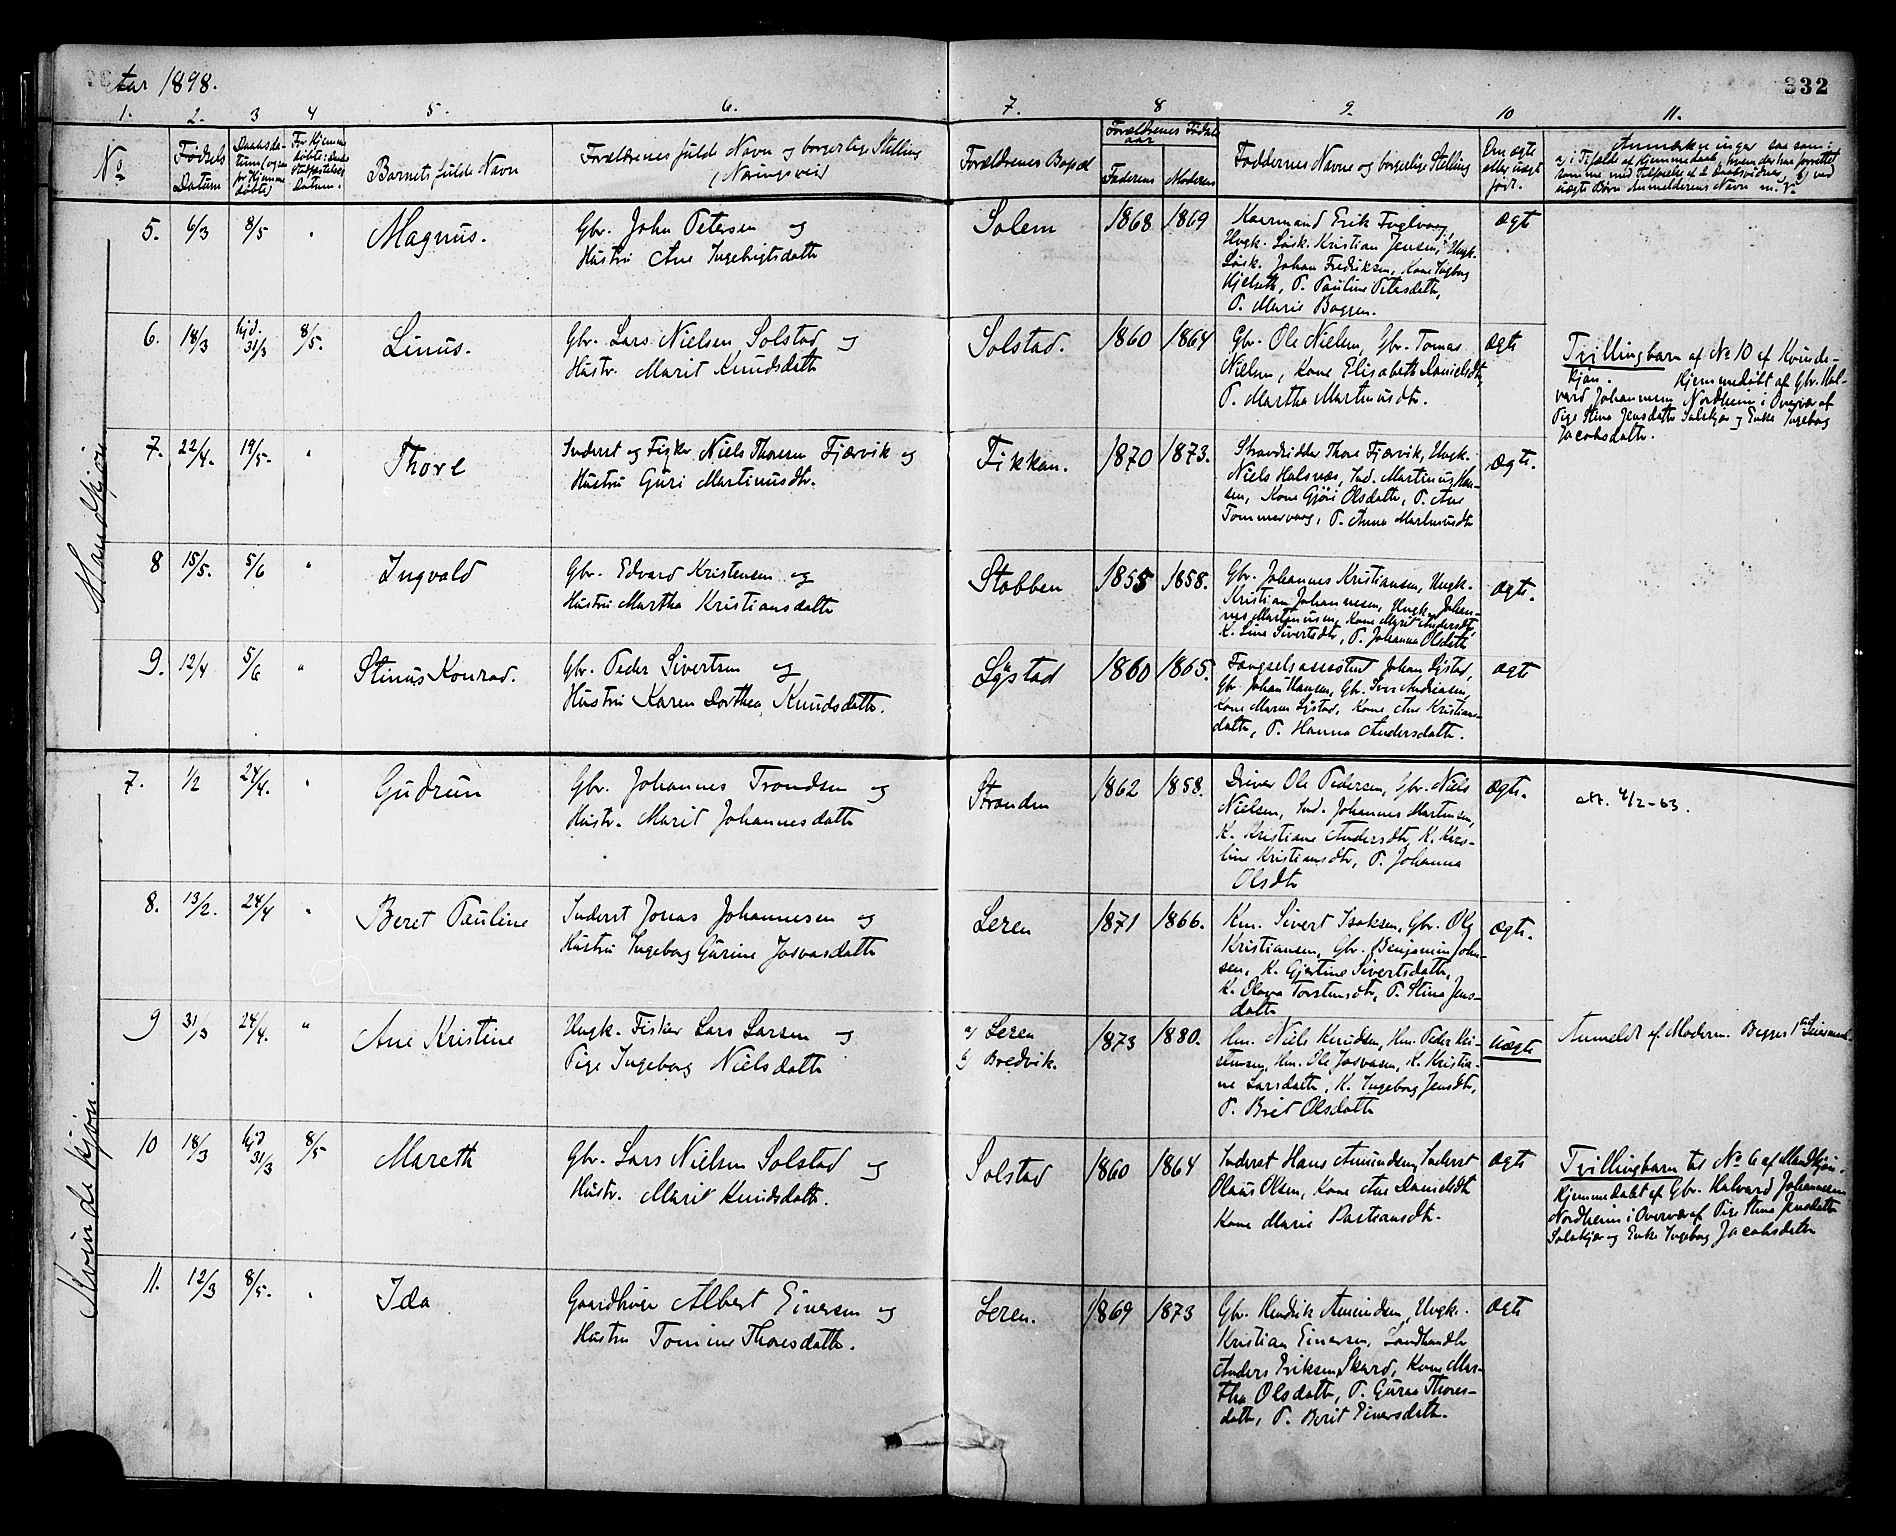 Aar 1898.
332
1. 2. 3 4 5. 6. 7. 8 9. 10 11.
No
Fødsels Datum
Daabsda-
tum (ogsaa
for Hjemme
døbte)
For Hjemme
døbte: Daabs
Stadfæstelses
Datum.
Barnets fulde Navn
Forældrenes fulde Navn og borgerlige Stilling
(Næringsvei)
Forældrenes Bopæl
Forældrenes Fødsels
aar
Faderens Moderens
Faddernes Navne og borgerlige Stilling
Om ægte
eller uægte
født.
Anmærkninger saa som:
a, i Tilfælde af Hjemmedaab, hvem der har forrettet
samme med Tilføielse af 2 Daabsvidner, b) ved
uægte Børn Anmelderens Navn m. v.
Mandkjøn
5. 6/3 8/5 " Magnus.
Gbr. John Petersen og
Hustru Ane Ingebrigtsdatter
Solem 1868 1869
Kaarmand Erik Fuglvaag,
Ungk. Løsk. Kristian Jensen, Ungk.
Løsk. Johan Fredriksen, Kone Ingborg
Hjelseth, P. Pauline Petersdatter,
P. Marie Boggen.
ægt
6. 18/3 hjd. 31/3 8/5. Linus.
Gbr. Lars Nielsen Solstad og
Hustr. Marit Knudsdatter
Solstad. 1860 1864
Gbr. Ole Nielsen, Gbr. Tomas
Nielsen, Kone Elisabeth Danielsdtr,
P. Martha Martinusdtr.
ægte
Tvillingbarn af No 10 af Kvinde-
kjøn. Hjemmedøbt af Gbr. Hal-
vard Johannesen Nordheim i Overvær af
Pige Stina Jensdatter Solskjær og Enke Ingeborg
Jacobsdatter.
7. 22/4. 19/5. " Thore
Inderst og Fisker Niels Thoresen Fjærvik og
Hustru Guri Martinusdtr.
Fikkan. 1870 1873.
Strandsidder Thore Fjærvik, Ungk.
Niels Halsnæs, Ind. Martinus Han-
sen, Kone Gjøri Olsdatter, P. Ane
Tommervaag, P. Anna Martinusdtr
Ægte.
8 15/5. 5/6 " Ingvald
Gbr. Edvard Kristensen og
Hustru Martha Kristiansdatter
Stobben 1855 1858.
Gbr. Johannes Kristiansen, Ungk.
Kristian Johannesen, Ungk. Johan-
nes Martinusen, Kone Marit Andersdtr,
K. Lina Sivertsdtr, P. Johanna Olsdatter
Ægt.
9. 12/4 5/6 " Stinus Konrad.
Gbr. Peder Sivertsen og
Hustru Karen Dorthea Knudsdatter.
Lystad 1860 1865.
Fængselsassistent Johan Lystad,
Gbr Johan Hansen, Gbr. Iver Andreasen,
Kone Maren Lystad, Kone Ane Kristians-
datter, P. Hanna Andersdatter.
ægt
Kvindekjøn.
7. 1/2 24/4. " Gudrun
Gbr. Johannes Trondsen og
Hustr. Marit Johannesdatter
Stranden 1862 1858.
Driver Ole Pedersen, Gbr. Niels
Nielsen, Ind. Johannes Martinsen,
K. Kristiane Andersdtr, K. Karo-
line Kristiansdtr, P. Johanna
Olsdtr
Ægte.
att. 4/2-63.
8. 13/2. 24/4 " Beret Pauline
Inderst Jonas Johannesen og
Hustru Ingeborg Gurine Josvasdatter
Leren 1871 1866.
Km. Sivert Isaksen, Gbr. Ole
Kristiansen, Gbr. Benjamin John-
sen, K. Gjertine Sivertsdatter,
K. Olava Torstensdtr, P. Stina Jens-
datter
ægte.
9 31/3 24/4. " Ane Kristine
Ungk. Fisker Lars Larsen og
Pige Ingeborg Nielsdatter
a) Leren
b) Bredvik.
1873 1880.
Hm. Niels Knudsen, Hm. Peder Kri-
stensen, Hm. Ole Josvasen, K. Kristia-
ne Larsdatter, K. Ingeborg Jensdtr,
P. Brit Olsdatter
uægte
Anmeldt af Moderen. Begges 1ste Leiermaal.
10 18/3 hjd 31/3 8/5 Mareth
Gbr. Lars Nielsen Solstad og
Hustr. Marit Knudsdatter.
Solstad 1860 1864
Inderst Hans Amundsen, Inderst
Olaus Olsen, Kone Ane Danielsdtr
Kone Marie Bastiansdtr.
ægte
Tvillingbarn til No 6 af Mandkjøn.
Hjemmedøbt af Gbr. Halvard Johannesen
Nordheim i Overvær af Pige Stina Jensdatter
Solskjær og Enke Ingeborg Jacobsdatter
11. 12/3 8/5. " Ida
Gaardbruger Albert Einersen og
Hustru Tomine Thoresdatter.
Leren. 1869 1873
Gbr. Hendrik Amundsen, Ungk.
Kristian Einersen, Landhandler
Anders Eriksen Skard, Kone Mar-
tha Olsdatter, P. Guraa Thores-
datter, P. Berit Einersdatter.
ægte